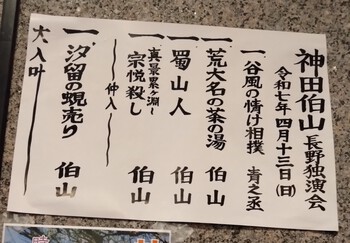 神田伯山 長野独演会
令和七年四月十三日(日)
一 谷風の情け相撲 青之丞
一 荒大名の茶の湯 伯山
一 蜀山人 伯山
一 真景累ヶ淵〜宗悦殺し 伯山
〜仲入〜
一 汐留の蜆売り 伯山
大入叶